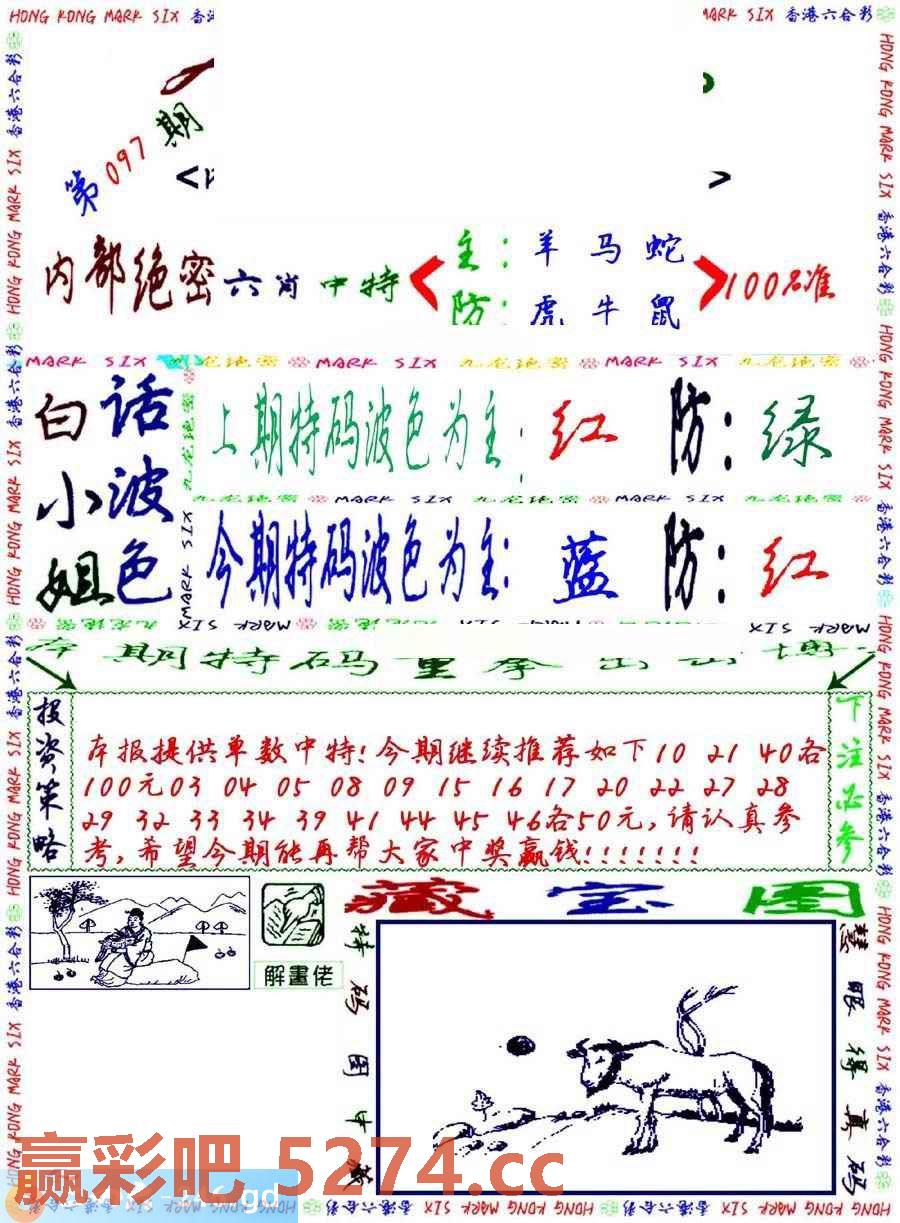 HONG KONG MARK SIX 香港六合彩
第097期
内部绝密六肖中特
主：羊马蛇
防：虎牛鼠
100%准
MARK SIX 九龙绝密 MARK SIX 九龙绝密 MARK SIX 九龙绝密
白话
小波
姐色
上期特码波色为主：红 防：绿
九龙绝密 MARK SIX 九龙绝密 MARK SIX
今期特码波色为主：蓝 防：红
期特码
投资策略
本报提供单数中特！今期继续推荐如下10 21 40各
100元03 04 05 08 09 15 16 17 20 22 27 28
29 32 33 34 39 41 44 45 46各50元，请认真参
考，希望今期能再帮大家中奖赢钱！！！！！！！
下注必参
藏宝图
解畫佬
特码图中
慧眼得真码
赢彩吧 5274.cc